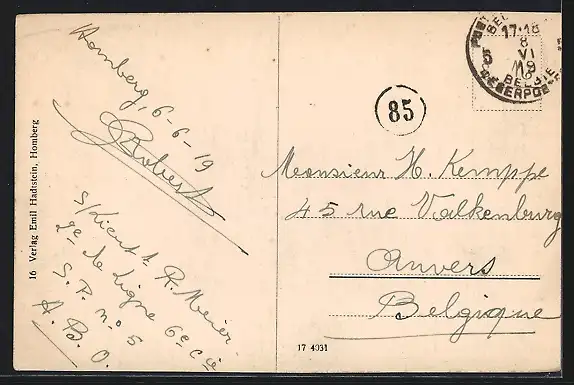 Homberg, 6-6-19
Robert
S/Lieutt R. Meier
2e de Ligne 6e Cie
S.P. no 5
A.B.O.
16 Verlag Emil Hadtstein, Homberg
17-18
8
VI
19
5
BELGIE
LEGERPOST
85
Monsieur H. Kemppe
45 rue Valkenburg
Anvers
Belgique
17 4031